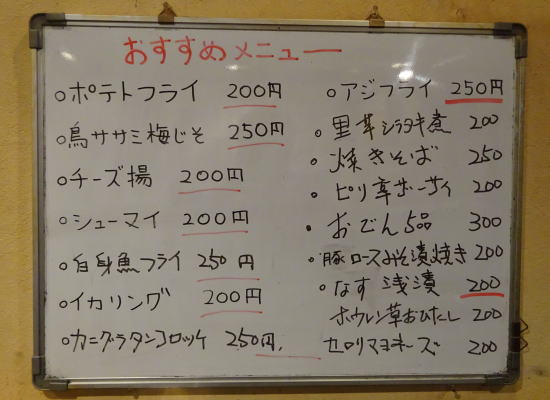 おすすめメニュー
○ポテトフライ 200円
○鳥ササミ梅じそ 250円
○チーズ揚 200円
○シューマイ 200円
○白身魚フライ 250円
○イカリング 200円
○カニグラタンコロッケ 250円.
○アジフライ 250円
・里芋シラタキ煮 200
・焼きそば 250
・ピリ辛ソーセイ 200
・おでん5品 300
・豚ロースみそ漬焼き 200
・なす浅漬 200
ホウレン草おひたし 200
セロリマヨネーズ 200